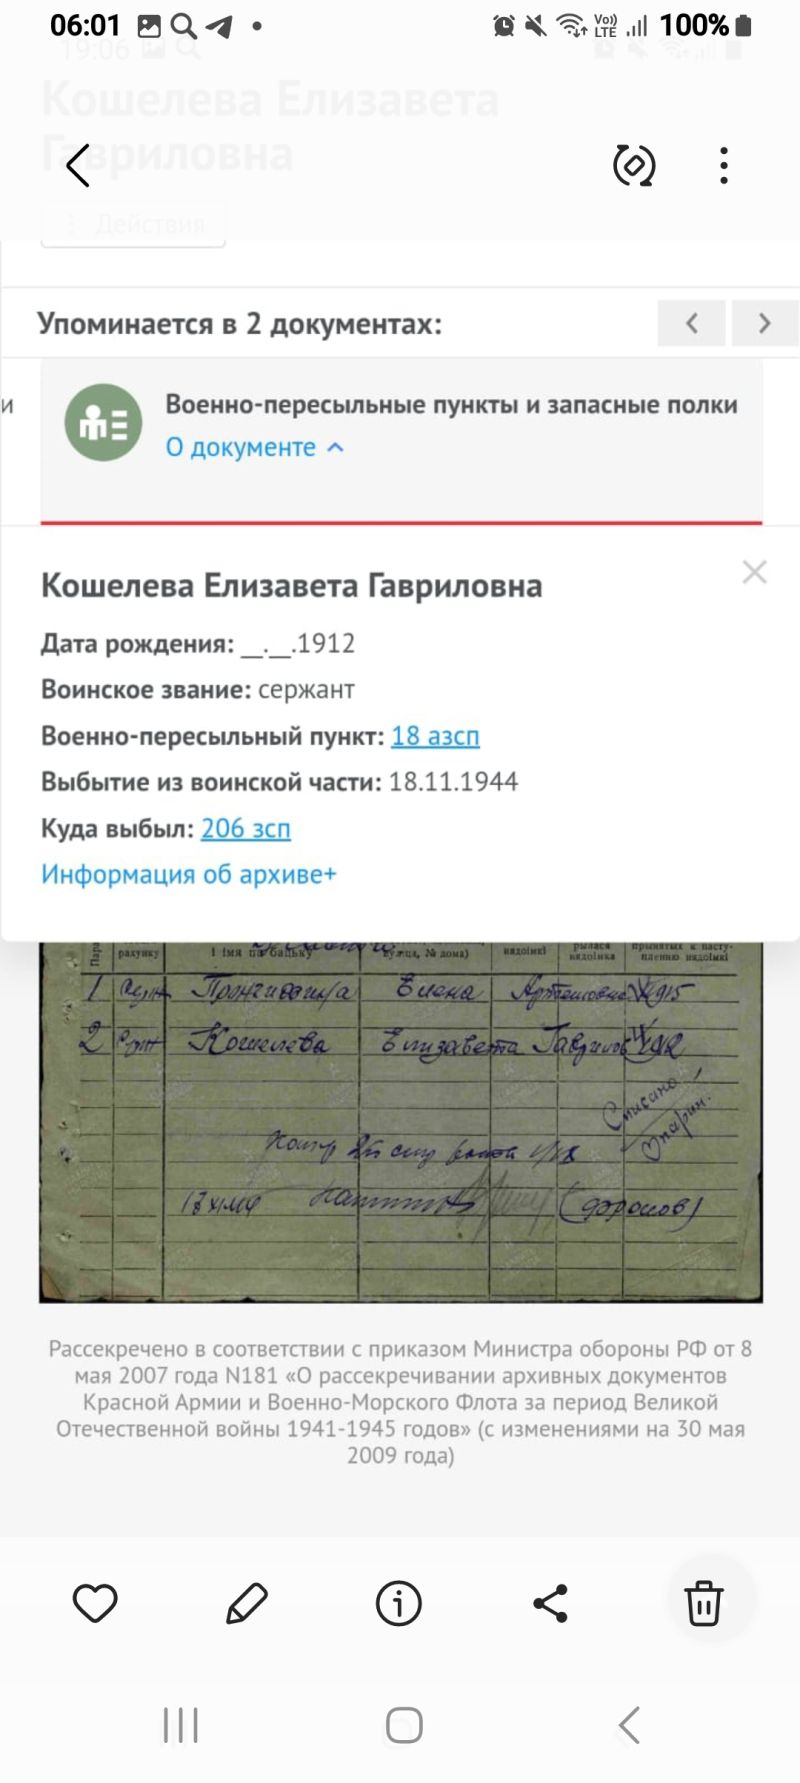 06:01
Vo))
LTE
100%
19:06
Кошелева Елизавета
Гавриловна
Действия
Упоминается в 2 документах:
и
Военно-пересыльные пункты и запасные полки
О документе
Кошелева Елизавета Гавриловна
Дата рождения: __.__.1912
Воинское звание: сержант
Военно-пересыльный пункт: 18 азсп
Выбытие из воинской части: 18.11.1944
Куда выбыл: 206 зсп
Информация об архиве+
рахунку
і імя па бацьку
№ дома)
1 Елена 1915
2 Кошелева Елизавета Гаврилов
Списано!
Рассекречено в соответствии с приказом Министра обороны РФ от 8
мая 2007 года N181 «О рассекречивании архивных документов
Красной Армии и Военно-Морского Флота за период Великой
Отечественной войны 1941-1945 годов» (с изменениями на 30 мая
2009 года)